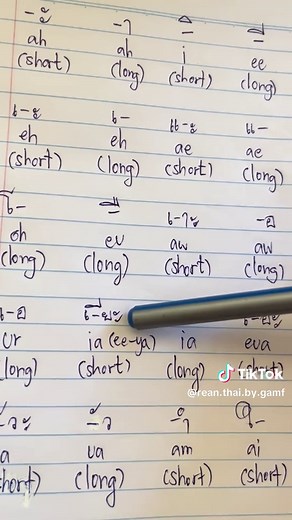 -ะ -า -ิ -ี
ah ah i ee
(short) (long) (short) (long)
เ-ะ เ- แ-ะ แ-
eh eh ae ae
(short) (long) (short) (long)
โ- -ื เ-าะ -อ
oh eu aw aw
(long) (long) (short) (long)
เ-อ เ-ียะ
ur ia (ee-ya) ia eua
(long) (short) (long) (short)
-ัวะ -ัว -ำ ใ-
a ua am ai
(short) (long) (short) (short)
TikTok
@rean.thai.by.gamf